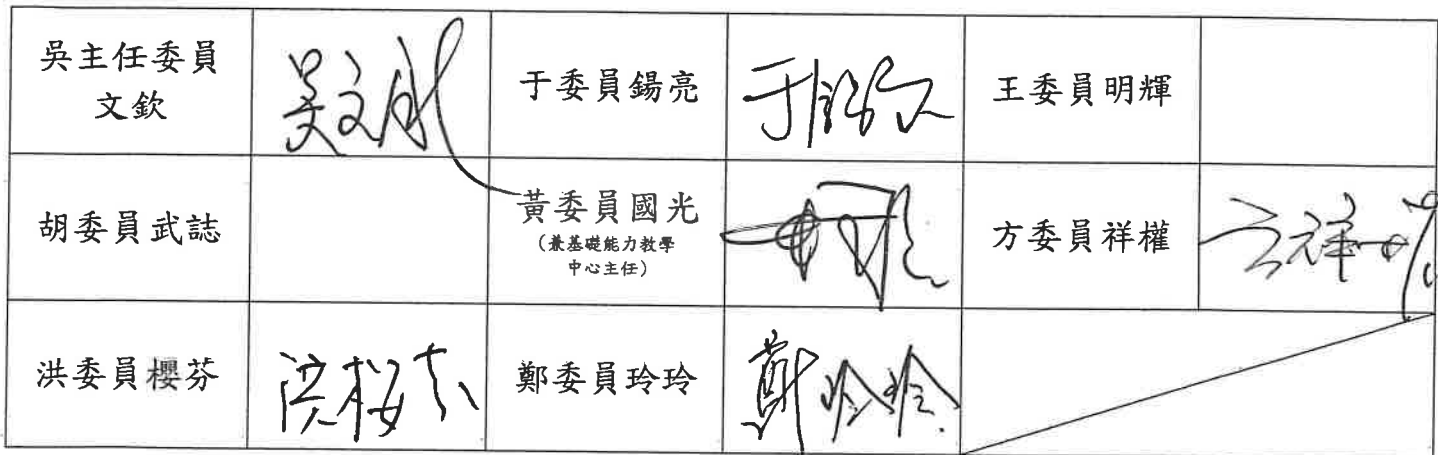 吳主任委員
文欽
吳文欽
于委員錫亮
王委員明輝
胡委員武誌
黃委員國光
(兼基礎能力教學
中心主任)
方委員祥權
方祥權
洪委員櫻芬
洪櫻芬
鄭委員玲玲
鄭玲玲